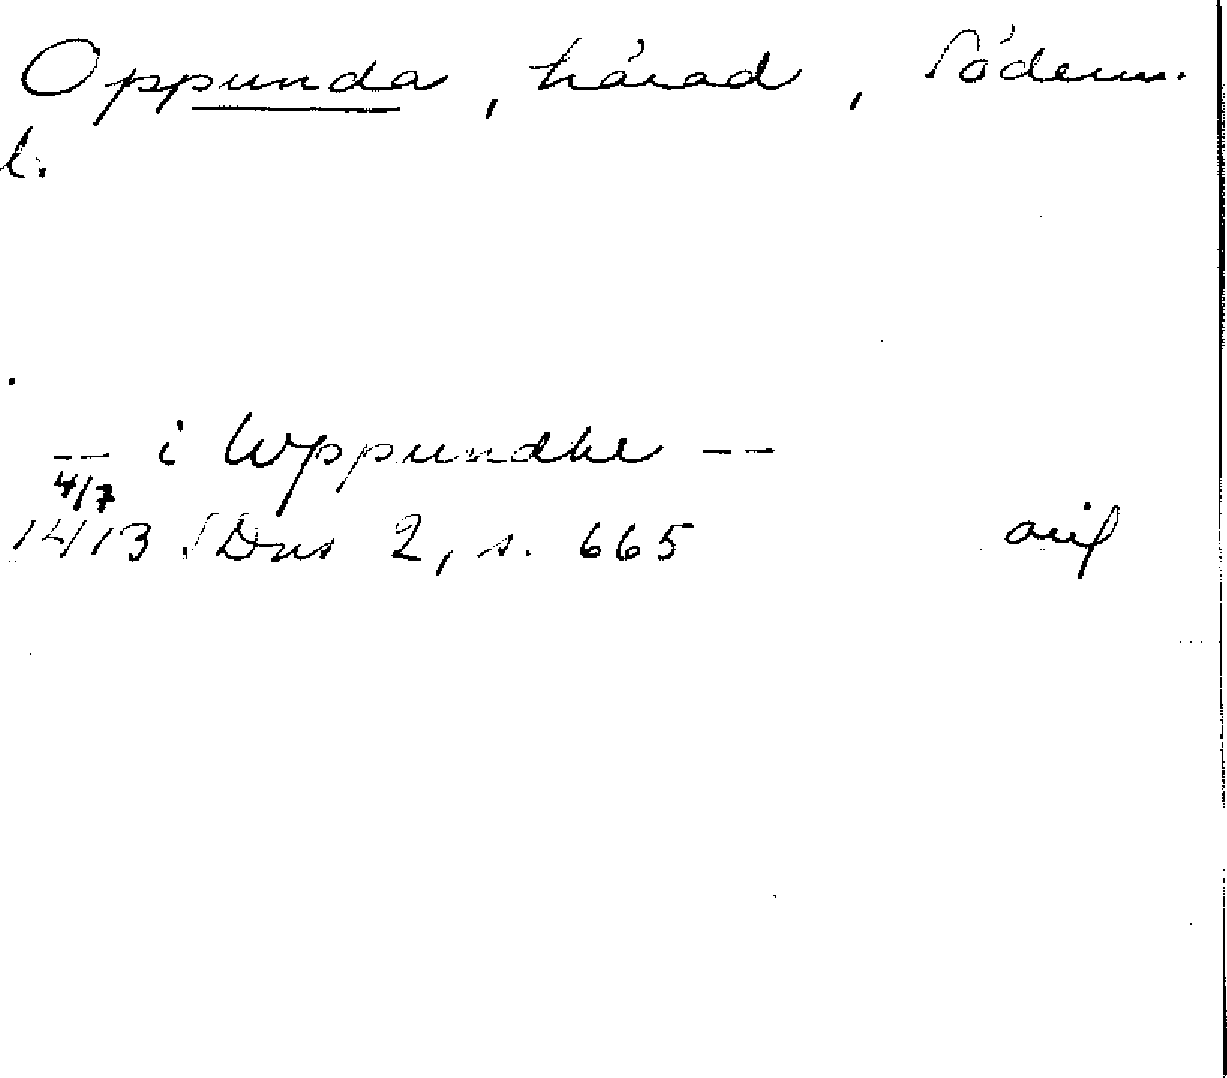 Oppunda, härad, Söderm.
l.
-- i Wppundhe --
4/7
1413 SDns 2, s. 665 avs